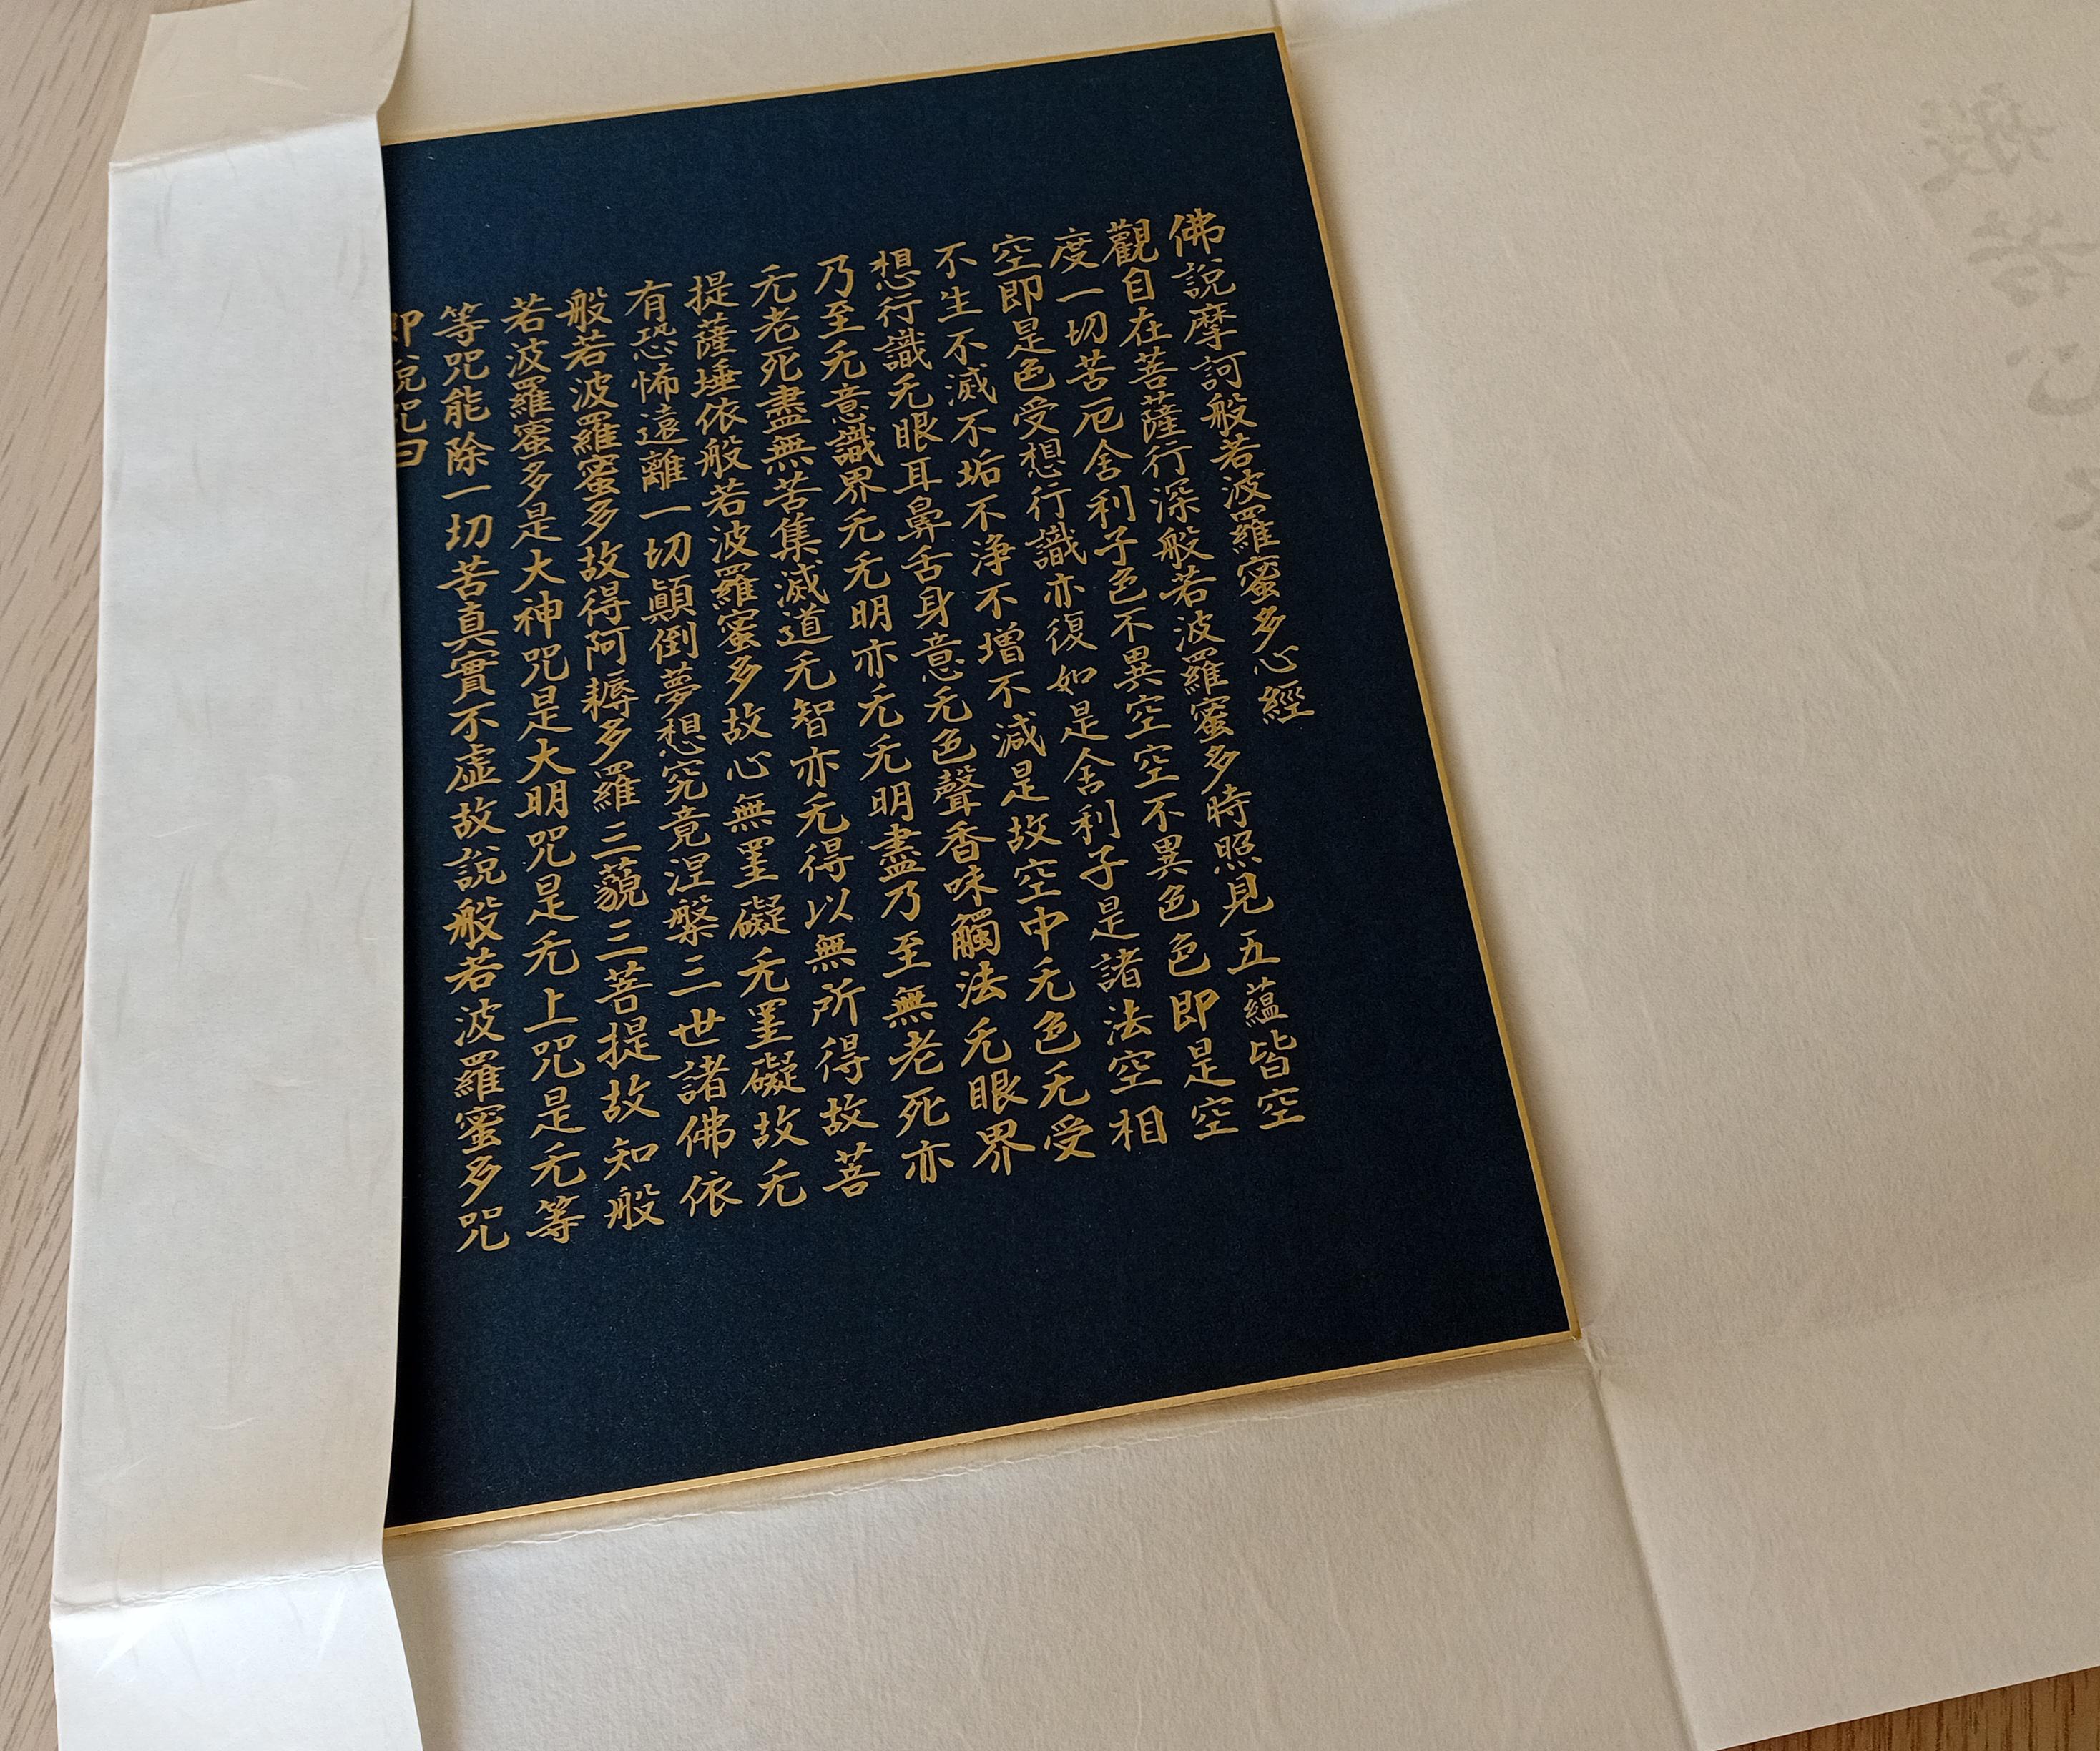 佛說摩訶般若波羅蜜多心經
觀自在菩薩行深般若波羅蜜多時照見五蘊皆空
度一切苦厄舍利子色不異空空不異色色即是空
空即是色受想行識亦復如是舍利子是諸法空相
不生不滅不垢不淨不增不減是故空中无色无受
想行識无眼耳鼻舌身意无色聲香味觸法无眼界
乃至无意識界无无明亦无无明盡乃至無老死亦
无老死盡無苦集滅道无智亦无得以無所得故菩
提薩埵依般若波羅蜜多故心無罣礙无罣礙故无
有恐怖遠離一切顛倒夢想究竟涅槃三世諸佛依
般若波羅蜜多故得阿耨多羅三藐三菩提故知般
若波羅蜜多是大神咒是大明咒是无上咒是无等
等咒能除一切苦真實不虛故說般若波羅蜜多咒
即說咒曰
般若心